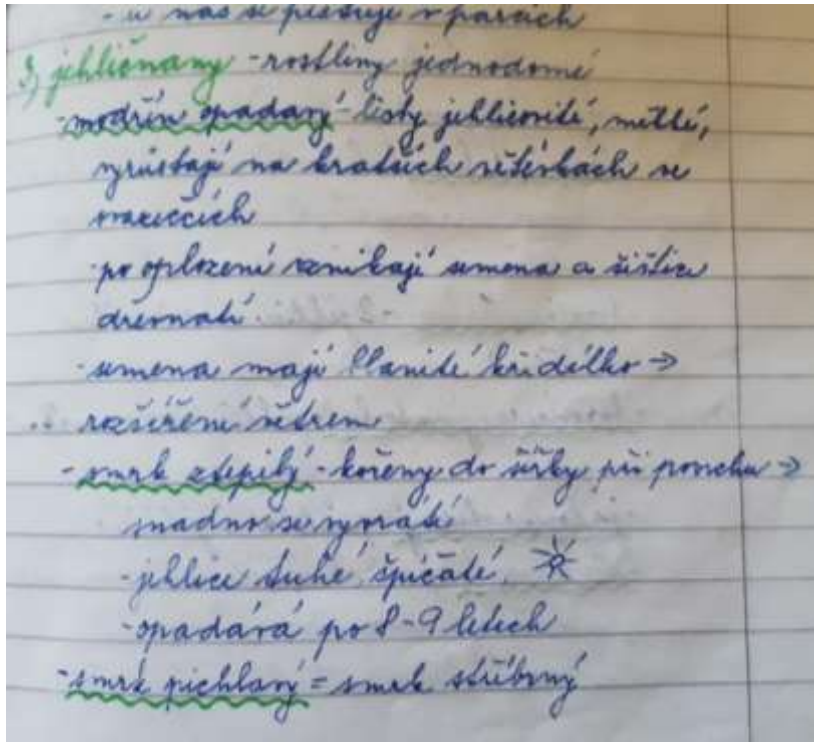 - u nás se pěstuje v parcích
3) jehličnany - rostliny jednodomé
- modřín opadavý - listy jehlicovité, měkké,
vyrůstají na kratších větévkách ve
svazečcích
- po oplození vznikají semena a šištice
dřevnatí
- semena mají blanité křidélko →
rozšíření větrem
- smrk ztepilý - kořeny do šířky při povrchu →
snadno se vyvrátí
- jehlice tuhé, špičaté
- opadává po 8-9 letech
- smrk pichlavý = smrk stříbrný